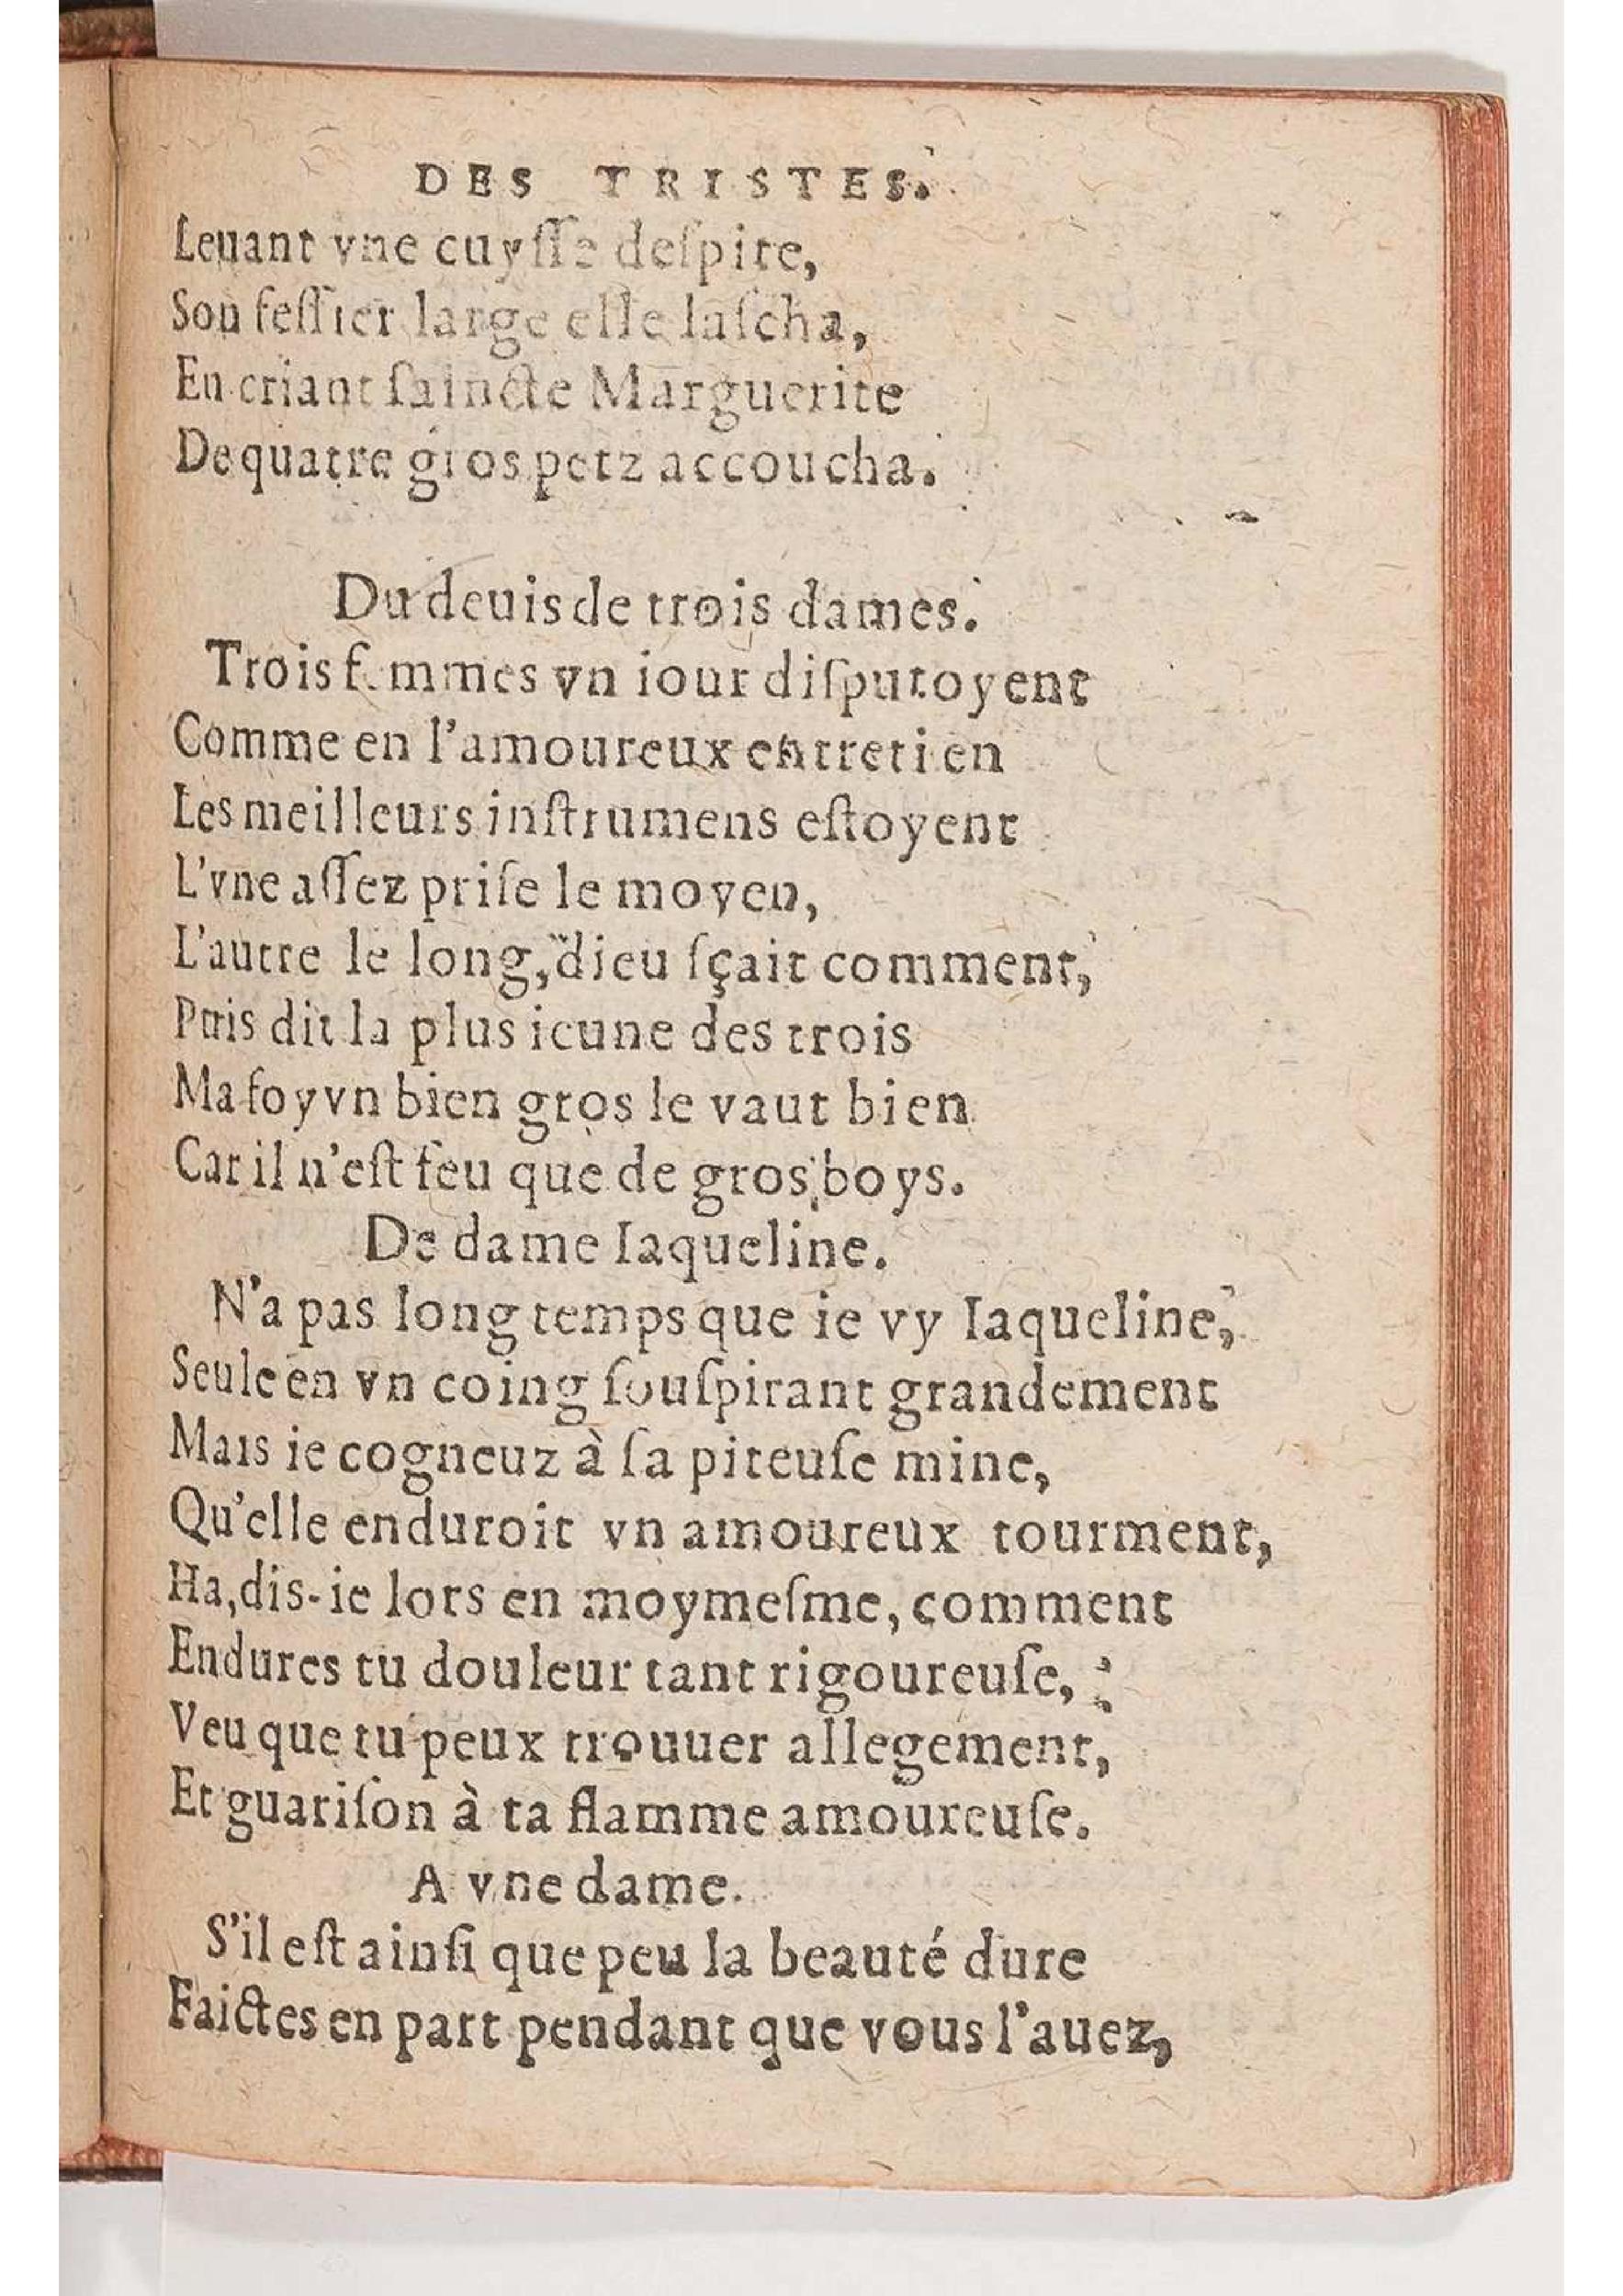 DES TRISTES.
Leuant vne cuyſſe deſpite,
Son feſſier large elle laſcha,
En criant ſaincte Marguerite
De quatre gros petz accoucha.
Du deuis de trois dames.
Trois femmes vn iour diſputoyent
Comme en l'amoureux entretien
Les meilleurs inſtrumens eſtoyent
L'vne aſſez priſe le moyen,
L'autre le long, dieu ſçait comment,
Puis dit la plus ieune des trois
Ma foy vn bien gros le vaut bien
Car il n'eſt feu que de gros boys.
De dame Iaqueline.
N'a pas long temps que ie vy Iaqueline,
Seule en vn coing ſouſpirant grandement
Mais ie cogneuz à ſa piteuſe mine,
Qu'elle enduroit vn amoureux tourment,
Ha, dis-ie lors en moymeſme, comment
Endures tu douleur tant rigoureuſe,
Veu que tu peux trouuer allegement,
Et guariſon à ta flamme amoureuſe.
A vne dame.
S'il eſt ainſi que peu la beauté dure
Faictes en part pendant que vous l'auez,